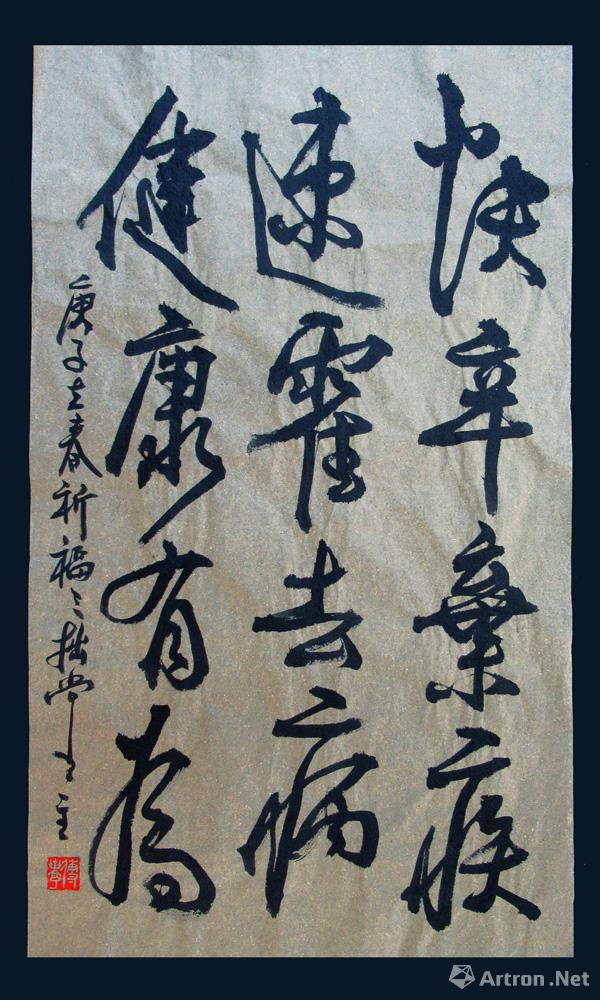 快辛棄疾
速霍去病
健康有為
庚子立春祈福之拙堂主
Artron.Net